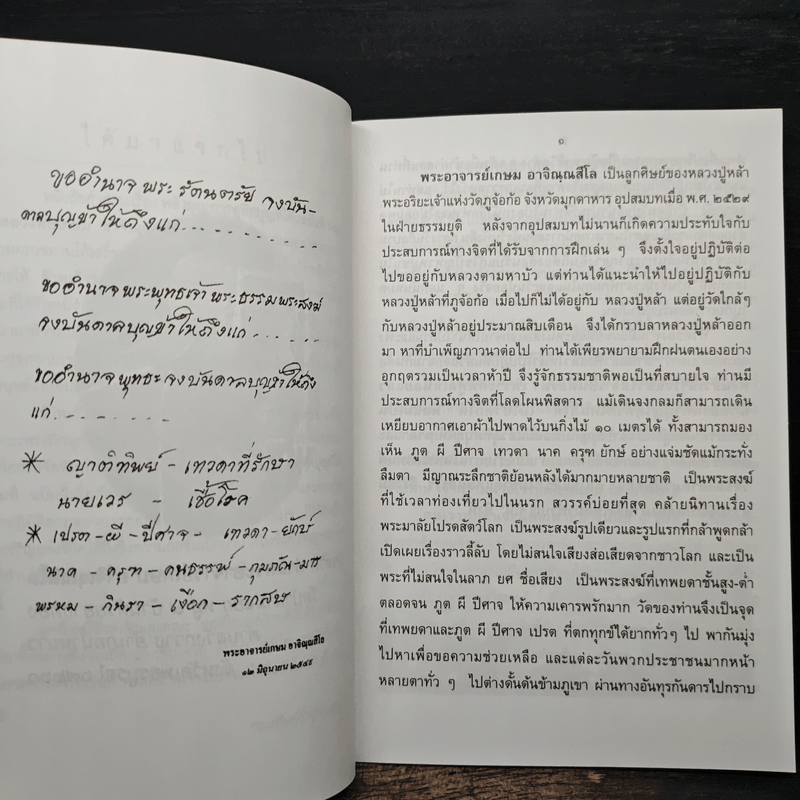 ขออำนาจ พระรัตนตรัย จงบัน-
ดาลบุญข้าให้ถึงแก่. . . . . . . . . .
ขออำนาจพระพุทธเจ้า พระธรรม พระสงฆ์
จงบันดาลบุญข้าให้ถึงแก่. . . . . .
ขออำนาจพุทธะ จงบันดาลบุญข้าให้ถึง
แก่. . . . . . . .
* ญาติทิพย์ - เทวดาที่รักษา
นายเวร - เชื้อโรค
* เปรต - ผี - ปีศาจ - เทวดา - ยักษ์
นาค - ครุฑ - คนธรรพ์ - กุมภัณ - มาร
พรหม - กินรา - เงือก - รากสษ
พระอาจารย์เกษม อาจิณฺณสีโล
๑๒ มิถุนายน ๒๕๔๙
๑
พระอาจารย์เกษม อาจิณฺณสีโล เป็นลูกศิษย์ของหลวงปู่หล้า
พระอริยะเจ้าแห่งวัดภูจ้อก้อ จังหวัดมุกดาหาร อุปสมบทเมื่อ พ.ศ. ๒๕๒๙
ในฝ่ายธรรมยุติ หลังจากอุปสมบทไม่นานก็เกิดความประทับใจกับ
ประสบการณ์ทางจิตที่ได้รับจากการฝึกเล่น ๆ จึงตั้งใจอยู่ปฏิบัติต่อ
ไปขออยู่กับหลวงตามหาบัว แต่ท่านได้แนะนำให้ไปอยู่ปฏิบัติกับ
หลวงปู่หล้าที่ภูจ้อก้อ เมื่อไปก็ไม่ได้อยู่กับ หลวงปู่หล้า แต่อยู่วัดใกล้ๆ
กับหลวงปู่หล้าอยู่ประมาณสิบเดือน จึงได้กราบลาหลวงปู่หล้าออก
มา หาที่บำเพ็ญภาวนาต่อไป ท่านได้เพียรพยายามฝึกฝนตนเองอย่าง
อุกฤตรวมเป็นเวลาห้าปี จึงรู้จักธรรมชาติพอเป็นที่สบายใจ ท่านมี
ประสบการณ์ทางจิตที่โลดโผนพิสดาร แม้เดินจงกลมก็สามารถเดิน
เหยียบอากาศเอาผ้าไปพาดไว้บนกิ่งไม้ ๑๐ เมตรได้ ทั้งสามารถมอง
เห็น ภูต ผี ปีศาจ เทวดา นาค ครุฑ ยักษ์ อย่างแจ่มชัดแม้กระทั่ง
ลืมตา มีญาณระลึกชาติย้อนหลังได้มากมายหลายชาติ เป็นพระสงฆ์
ที่ใช้เวลาท่องเที่ยวไปในนรก สวรรค์บ่อยที่สุด คล้ายนิทานเรื่อง
พระมาลัยโปรดสัตว์โลก เป็นพระสงฆ์รูปเดียวและรูปแรกที่กล้าพูดกล้า
เปิดเผยเรื่องราวลี้ลับ โดยไม่สนใจเสียงส่อเสียดจากชาวโลก และเป็น
พระที่ไม่สนใจในลาภ ยศ ชื่อเสียง เป็นพระสงฆ์ที่เทพยดาชั้นสูง-ต่ำ
ตลอดจน ภูต ผี ปีศาจ ให้ความเคารพรักมาก วัดของท่านจึงเป็นจุด
ที่เทพยดาและภูต ผี ปีศาจ เปรต ที่ตกทุกข์ได้ยากทั่วๆ ไป พากันมุ่ง
ไปหาเพื่อขอความช่วยเหลือ และแต่ละวันพวกประชาชนมากหน้า
หลายตาทั่ว ๆ ไปต่างดั้นด้นข้ามภูเขา ผ่านทางอันทุรกันดารไปกราบ